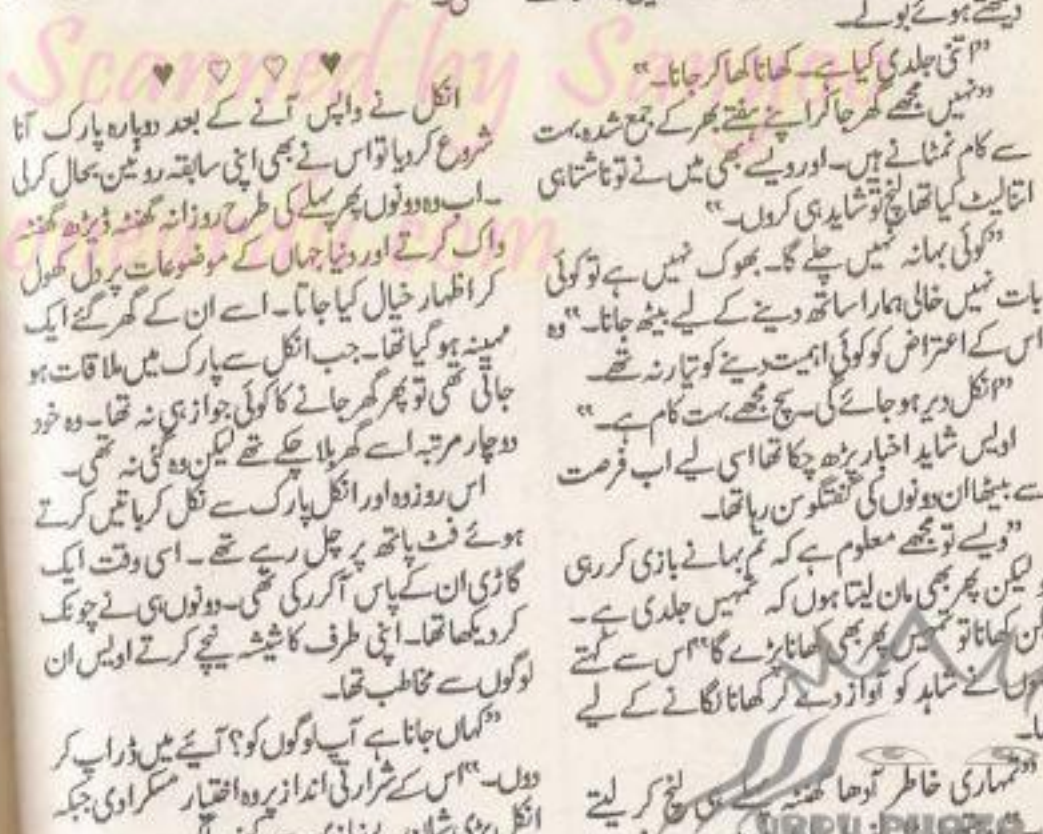 دیکھتے ہوئے بولے۔
”اتنی جلدی کیا ہے۔ کھانا کھا کر جانا۔“
”نہیں مجھے گھر جا کر اپنے ہفتے بھر کے جمع شدہ بہت
سے کام نمٹانے ہیں۔ اور ویسے بھی میں نے تو ناشتا ہی
اتنا لیٹ کیا تھا لنچ تو شاید ہی کروں۔“
”کوئی بہانہ نہیں چلے گا۔ بھوک نہیں ہے تو کوئی
بات نہیں خالی ہمارا ساتھ دینے کے لیے بیٹھ جانا۔“ وہ
اس کے اعتراض کو کوئی اہمیت دینے کو تیار نہ تھے۔
”انکل دیر ہو جائے گی۔ سچ مجھے بہت کام ہے۔“
اویس شاید اخبار پڑھ چکا تھا اسی لیے اب فرصت
سے بیٹھا ان دونوں کی گفتگو سن رہا تھا۔
”ویسے تو مجھے معلوم ہے کہ تم بہانے بازی کر رہی
لیکن پھر بھی مان لیتا ہوں کہ تمہیں جلدی ہے۔
کھانا تو تمہیں پھر بھی کھانا پڑے گا“ اس سے کہتے
نے شاہد کو آواز دے کر کھانا لگانے کے لیے
”تمہاری خاطر آدھا گھنٹہ پہلے ہی لنچ کر لیتے
♥ ♡ ♡ ♥
انکل نے واپس آنے کے بعد دوبارہ پارک آنا
شروع کر دیا تو اس نے بھی اپنی سابقہ روٹین بحال کر لی
۔ اب وہ دونوں پھر پہلے کی طرح روزانہ گھنٹہ ڈیڑھ گھنٹہ
واک کرتے اور دنیا جہاں کے موضوعات پر دل کھول
کر اظہار خیال کیا جاتا۔ اسے ان کے گھر گئے ایک
مہینہ ہو گیا تھا۔ جب انکل سے پارک میں ملاقات ہو
جاتی تھی تو پھر گھر جانے کا کوئی جواز ہی نہ تھا۔ وہ خود
دو چار مرتبہ اسے گھر بلا چکے تھے لیکن وہ گئی نہ تھی۔
اس روز وہ اور انکل پارک سے نکل کر باتیں کرتے
ہوئے فٹ پاتھ پر چل رہے تھے۔ اسی وقت ایک
گاڑی ان کے پاس آ کر رکی تھی۔ دونوں ہی نے چونک
کر دیکھا تھا۔ اپنی طرف کا شیشہ نیچے کرتے اویس ان
لوگوں سے مخاطب تھا۔
”کہاں جانا ہے آپ لوگوں کو؟ آئیے میں ڈراپ کر
دوں۔“ اس کے شرارتی انداز پر وہ بے اختیار مسکرا دی جبکہ
انکل بڑی
Scanned by
URDU PHOTO